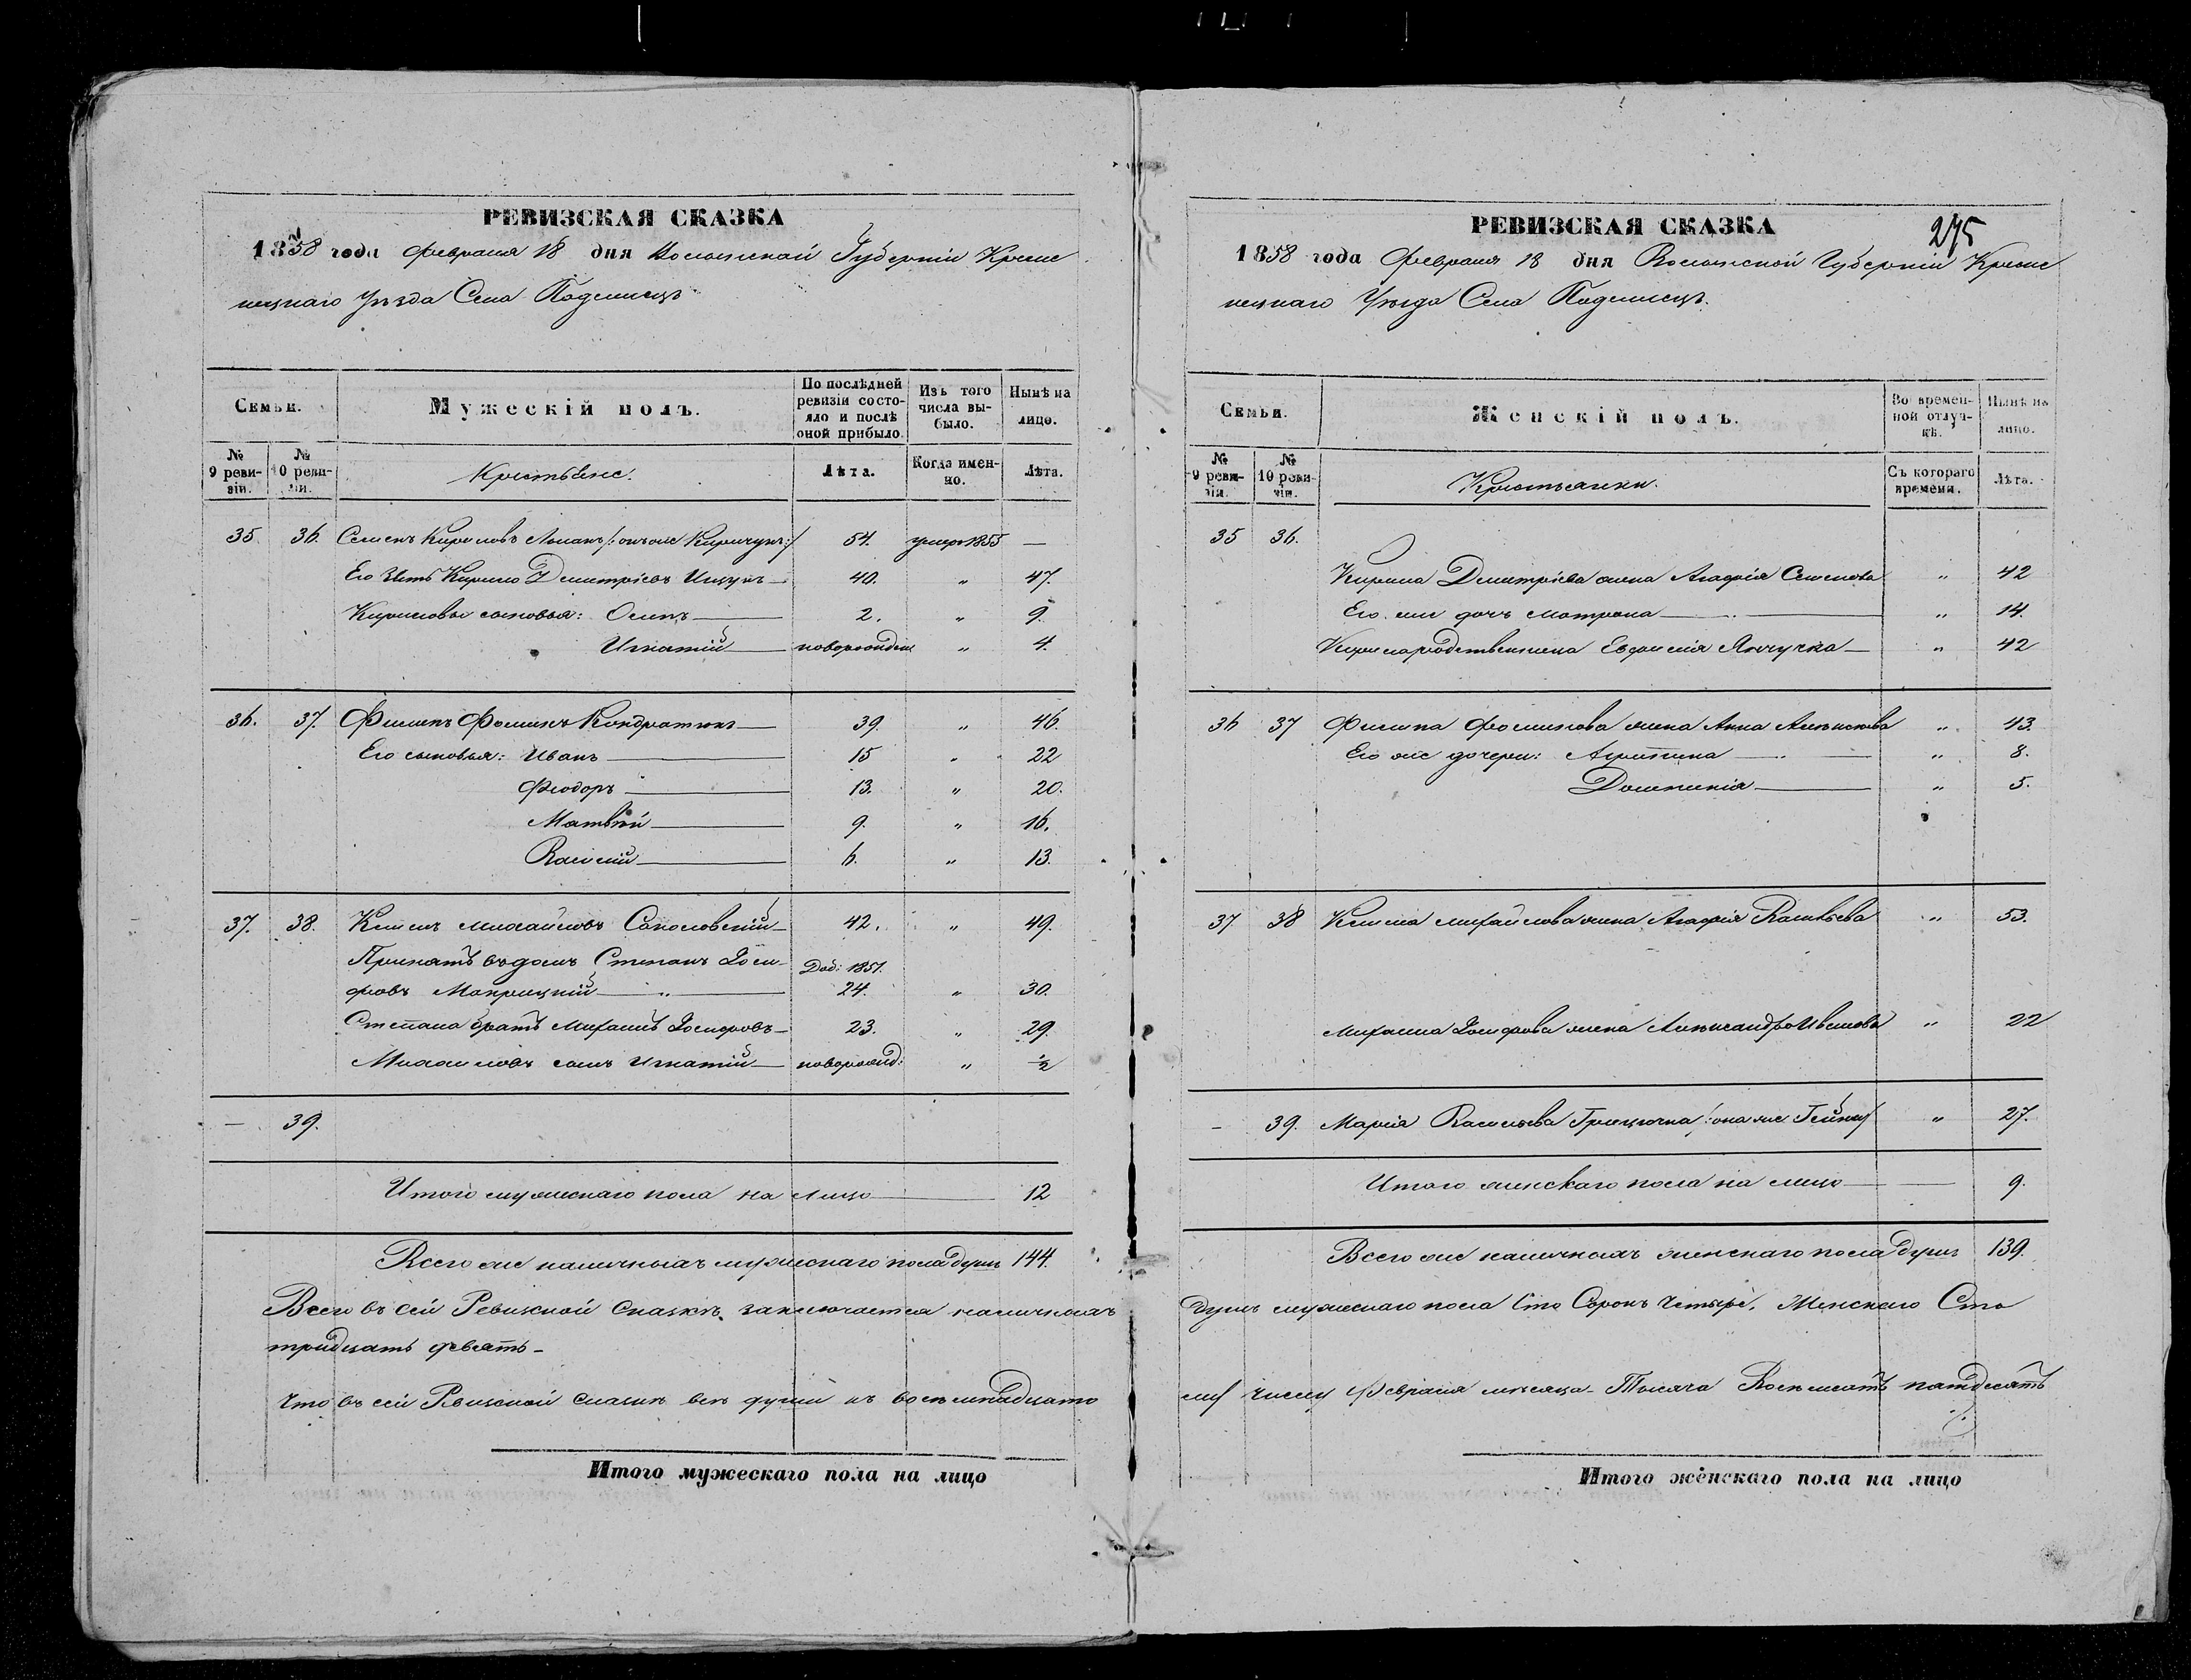 РЕВИЗСКАЯ СКАЗКА
1858 года Февраля 18 дня Волынской Губерніи Креме
нецкаго Уѣзда Села Подлисецъ
Семьи. Мужескій полъ. По послѣдней ревизіи состояло и послѣ оной прибыло. Изъ того числа выбыло. Нынѣ на лицо.
№ 9 ревизіи. № 10 ревизіи. Крестьяне. Лѣта. Когда именно. Лѣта.
35. 36. Семенъ Кириловъ /:онъ же Киричукъ:/ 54. умеръ 1855 —
Его зять Кирило Дмитріевъ 40. " 47.
Кириловы сыновья: Осипъ 2. " 9.
Игнатій новорожден " 4.
36. 37. Филипъ Фоминъ Кондратюкъ 39. " 46.
Его сыновья: Иванъ 15 " 22
Феодоръ 13. " 20.
Матвѣй 9. " 16.
Василій 6. " 13.
37. 38. Климъ Михайловъ Соколовскій 42. " 49.
Принятъ въ домъ Степанъ Іоси- Доб: 1851.
фовъ Мокрицкій 24. " 30.
Степана братъ Михаилъ Іосифовъ 23. " 29.
Михаиловъ сынъ Игнатій новорожд: " ½
— 39.
Итого мужескаго пола на лицо 12
Всего же наличныхъ мужескаго пола душъ 144.
Всего въ сей Ревизкой Сказкѣ заключается наличныхъ
тридцать девять
Что въ сей Ревизской сказкѣ всѣ души къ восемнадцато
Итого мужескаго пола на лицо
РЕВИЗСКАЯ СКАЗКА
275
1858 года Февраля 18 дня Волынской Губерніи Креме
нецкаго Уѣзда Села Подлисецъ.
Семьи. Женскій полъ. Во временной отлучкѣ. Нынѣ на лицо.
№ 9 ревизіи. № 10 ревизіи. Крестьянки. Съ котораго времени. Лѣта.
35 36.
Кирила Дмитріева жена Агафія Семенова " 42
Его же дочь Матрона " 14.
Кирила родственница Евфимія " 42
36 37 Филипа Фоминова жена Анна " 43.
Его же дочери: Агрипина " 8.
Домникія " 5.
37 38 Клима Михайлова жена Агафія " 53.
Михаила Іосифова жена Александра " 22
— 39. Марія Васильева /:она же " 27.
Итого женскаго пола на лицо 9.
Всего же наличныхъ женскаго пола душъ 139.
душъ мужескаго пола Сто Сорокъ Четыре, Женскаго Сто
му числу Февраля мѣсяца Тысяча Восемсотъ пятдесятъ
Итого женскаго пола на лицо